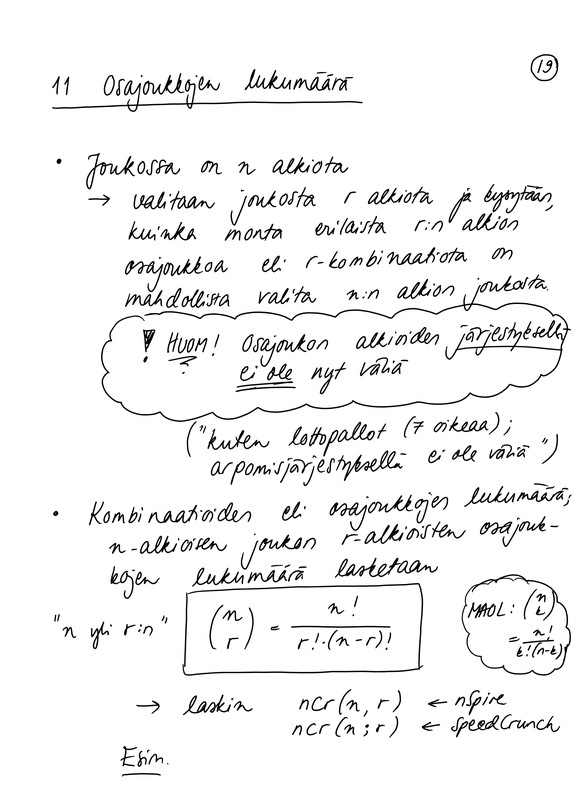 19
11 Osajoukkojen lukumäärä
• Joukossa on n alkiota
→ valitaan joukosta r alkiota ja kysytään,
kuinka monta erilaista r:n alkion
osajoukkoa eli r-kombinaatiota on
mahdollista valita n:n alkion joukosta.
! HUOM! Osajoukon alkioiden järjestyksellä
ei ole nyt väliä
("kuten lottopallot (7 oikeaa);
arpomisjärjestyksellä ei ole väliä")
• Kombinaatioiden eli osajoukkojen lukumäärä;
n-alkioisen joukon r-alkioisten osajouk-
kojen lukumäärä lasketaan
"n yli r:n" (n r) = n! / r!·(n-r)!
MAOL: (n k)
= n! / k!(n-k)!
→ laskin ncr(n, r) ← nSpire
ncr(n; r) ← SpeedCrunch
Esim.